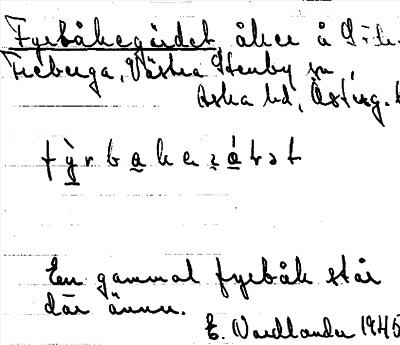 Fyrbåkegärdet, åker å
Freberga, Västra Stenby sn,
Aska hd, Österg.
En gammal fyrbåk står
där ännu.
E. Nordlander 1945